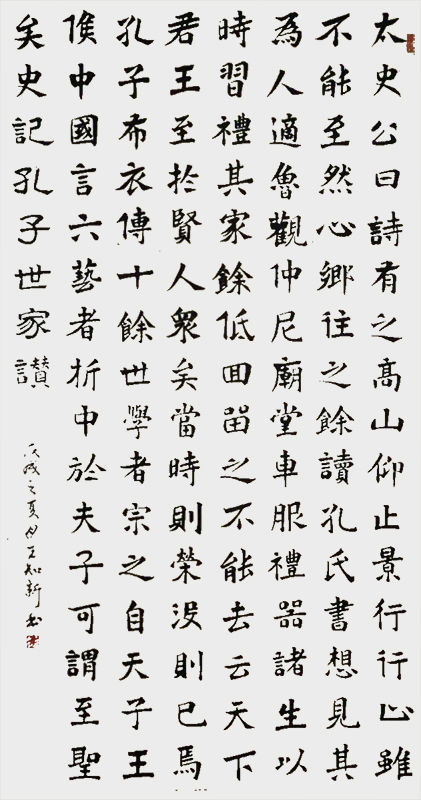 太史公曰詩有之高山仰止景行行止雖
不能至然心鄉往之餘讀孔氏書想見其
為人適魯觀仲尼廟堂車服禮器諸生以
時習禮其家餘低回留之不能去云天下
君王至於賢人衆矣當時則榮沒則已焉
孔子布衣傳十餘世學者宗之自天子王
侯中國言六藝者折中於夫子可謂至聖
矣史記孔子世家讚
丙戌之夏月王知新書